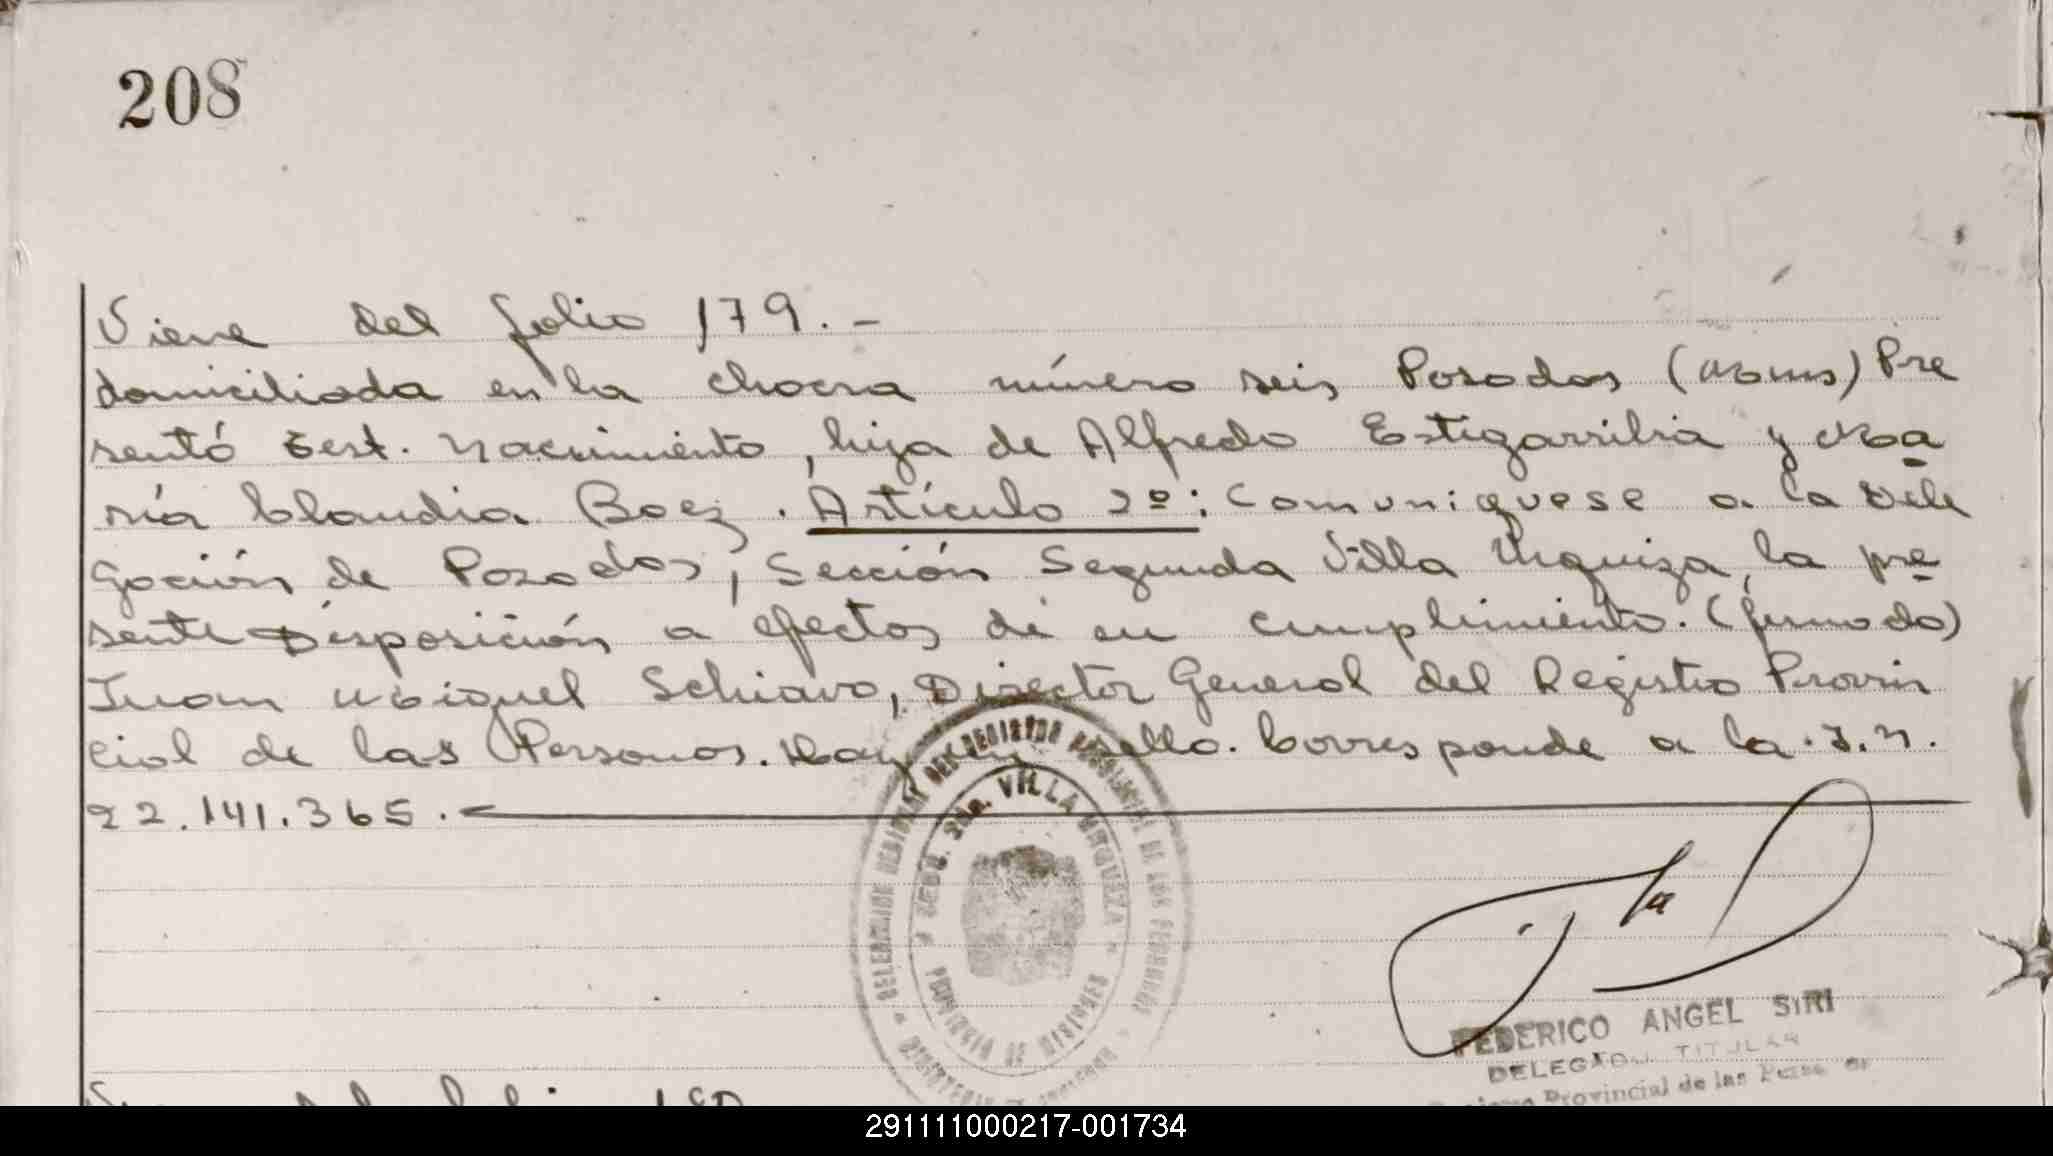 208
Viene del folio 179.-
domiciliada en la chacra número seis Posadas (Mnes) Pre
sentó Cert. Nacimiento, hija de Alfredo Estigarribia y Ma
ría Claudia Baez. Artículo 2º: Comuniquese a la Dele
gación de Posadas, Sección Segunda Villa Urquiza, la pre
sente Disposición a efectos de su cumplimiento. (firmado)
Juan Miguel Schiavo, Director General del Registro Provin
cial de las Personas. Hay un sello. Corresponde a la I.N.
22.141.365.
DELEGACION DEL REGISTRO PROVINCIAL DE LAS PERSONAS
SECC. 2da. VILLA URQUIZA
PROVINCIA DE MISIONES
MINISTERIO DE GOBIERNO
FEDERICO ANGEL SIRI
DELEGADO TITULAR
Provincial de las
291111000217-001734